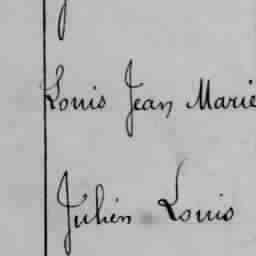 Louis Jean Marie
Julien Louis